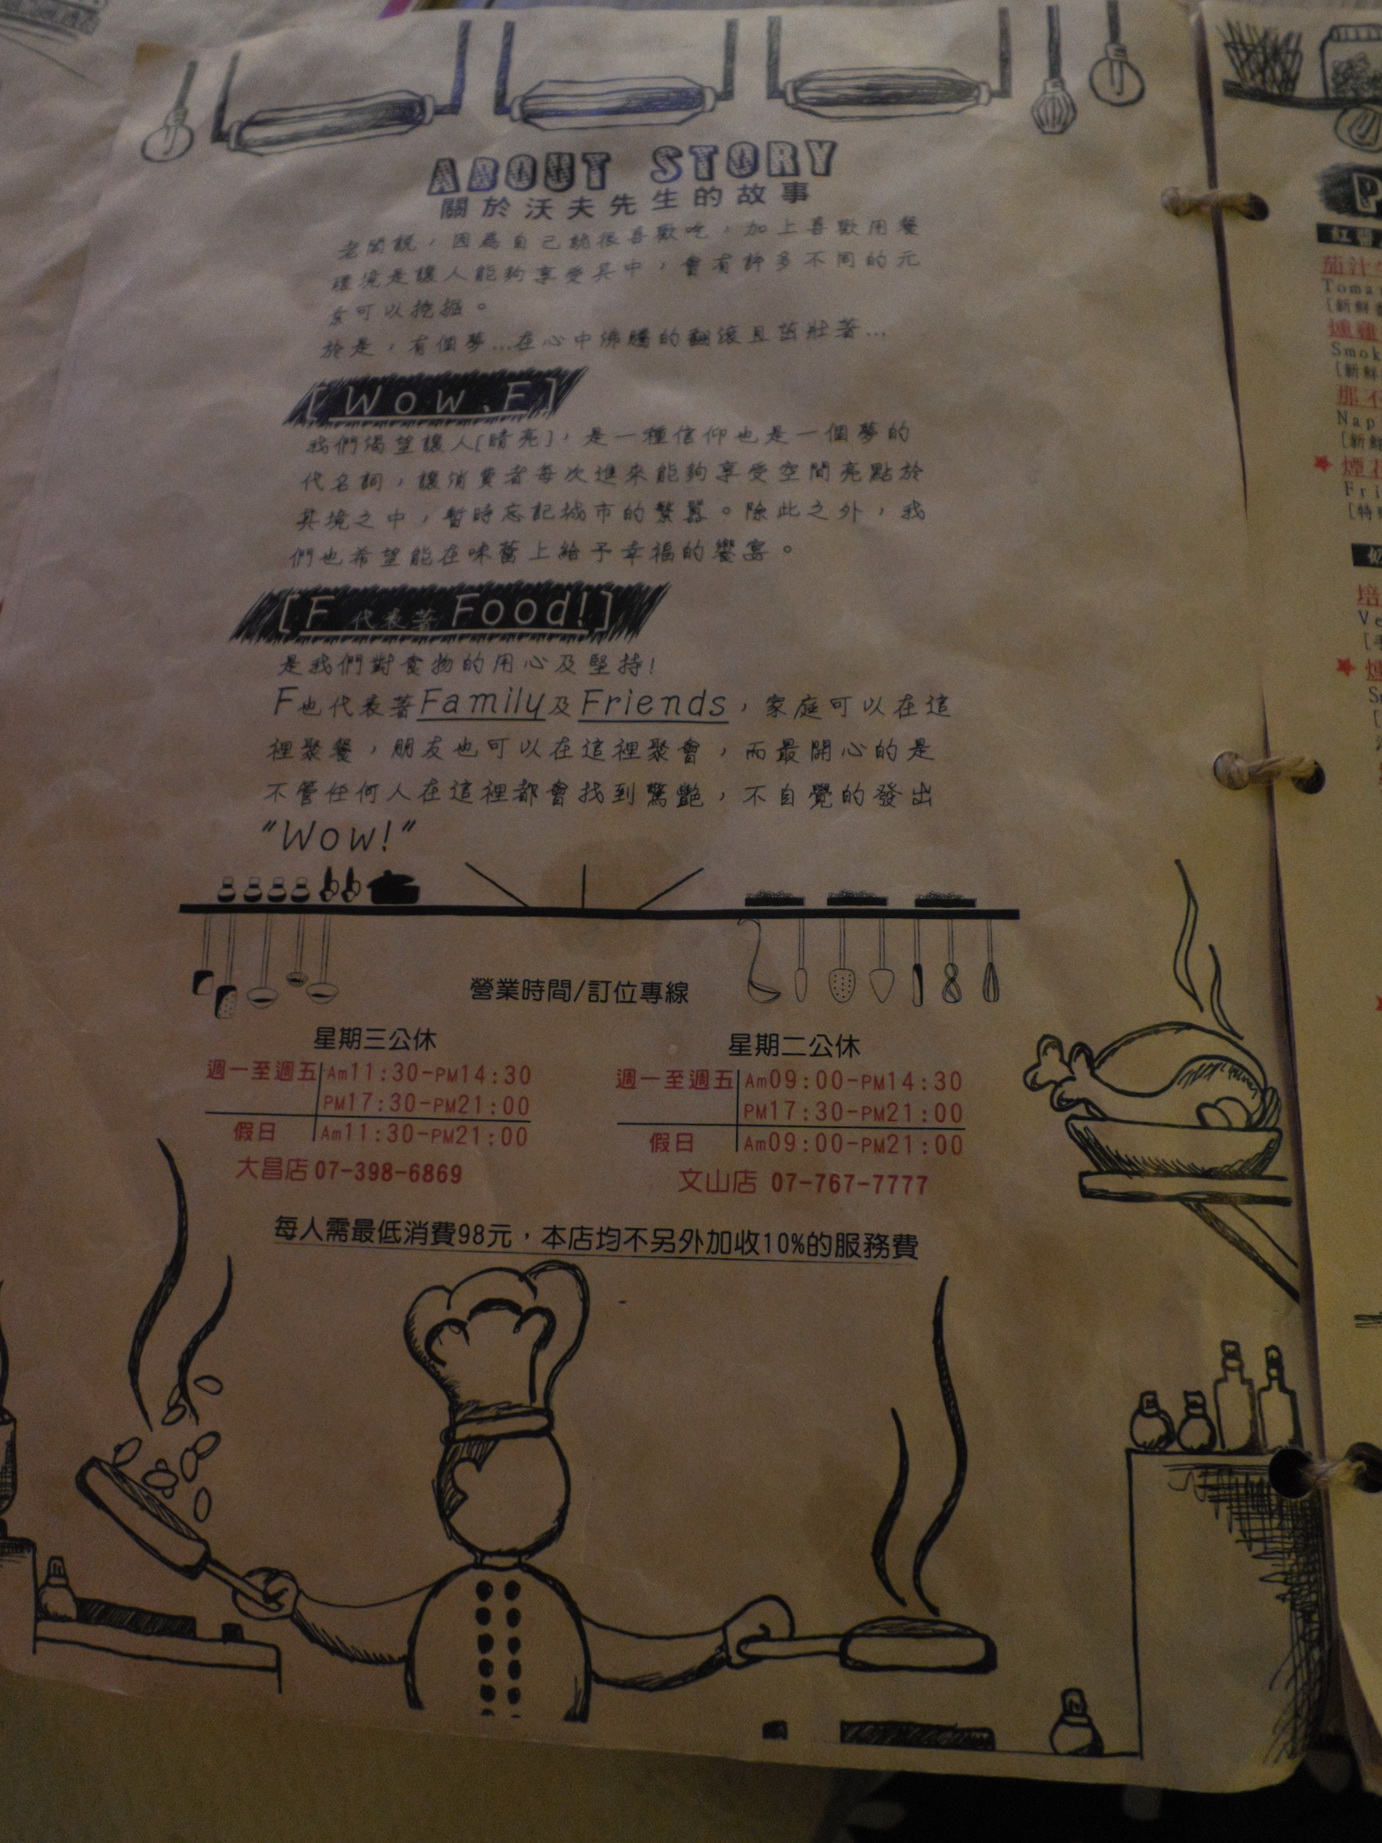 ABOUT STORY
關於沃夫先生的故事
老闆說，因為自己就很喜歡吃，加上喜歡用餐
環境是讓人能夠享受其中，會有許多不同的元
素可以挖掘。
於是，有個夢...在心中沸騰的翻滾且茁壯著...
[Wow.F]
我們渴望讓人[睛亮]，是一種信仰也是一個夢的
代名詞，讓消費者每次進來能夠享受空間亮點於
其境之中，暫時忘記城市的繁囂。除此之外，我
們也希望能在味蕾上給予幸福的饗宴。
[F 代表著 Food!]
是我們對食物的用心及堅持!
F也代表著Family及Friends，家庭可以在這
裡聚餐，朋友也可以在這裡聚會，而最開心的是
不管任何人在這裡都會找到驚艷，不自覺的發出
"Wow!"
營業時間/訂位專線
星期三公休
週一至週五 Am11:30-PM14:30
PM17:30-PM21:00
假日 Am11:30-PM21:00
大昌店 07-398-6869
星期二公休
週一至週五 Am09:00-PM14:30
PM17:30-PM21:00
假日 Am09:00-PM21:00
文山店 07-767-7777
每人需最低消費98元，本店均不另外加收10%的服務費
P
紅醬
茄汁
Toma
[新鮮
燻雞
Smok
[新鮮
那不
Nap
[新鮮
Fri
[特
培
Ve